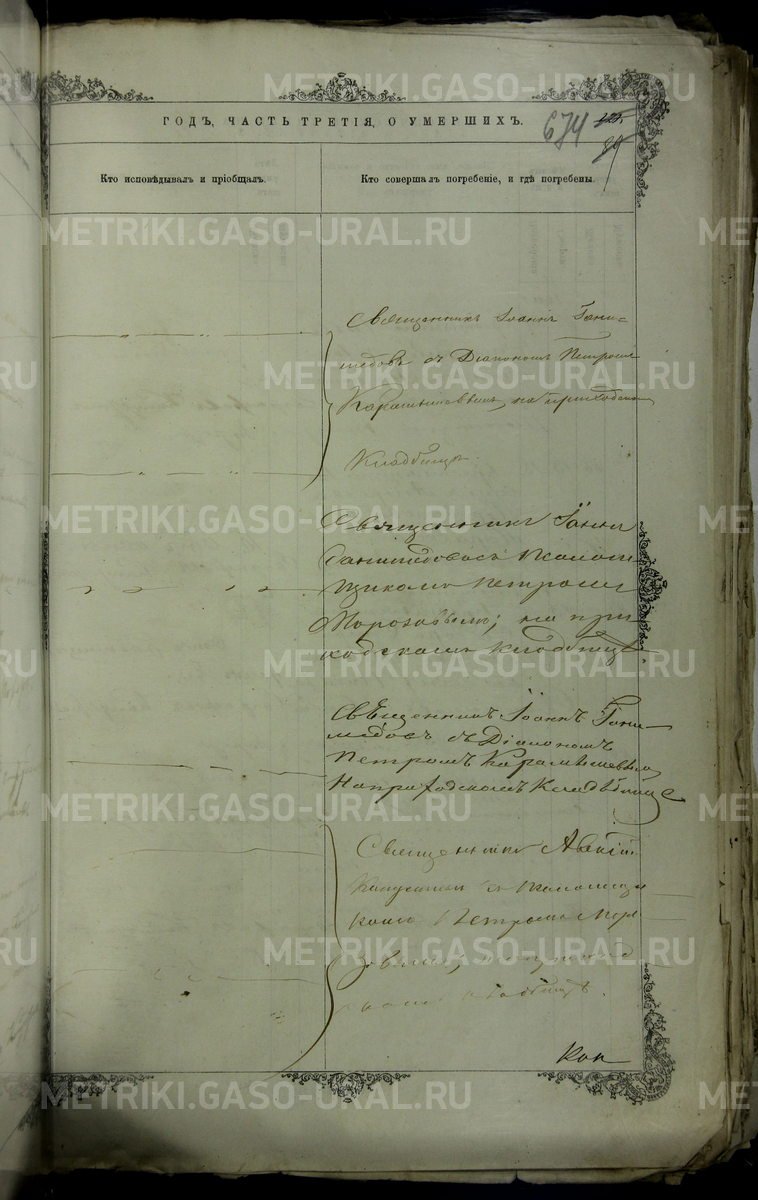 METRIKI.GASO-URAL.RU
ГОДЪ, ЧАСТЬ ТРЕТІЯ, О УМЕРШИХЪ.
674
89
Кто исповѣдывалъ и пріобщалъ.
Кто совершалъ погребеніе, и гдѣ погребены.
Священникъ Іоаннъ Гани-
медовъ съ Діакономъ Петромъ
Карамышевымъ, на приходском
Кладбищѣ.
Священникъ Іоаннъ
Ганимедовъ съ Псалом
щикомъ Петромъ
Морозовымъ; на при
ходскомъ кладбищѣ
Священникъ Іоаннъ Гани-
медовъ съ Діакономъ
Петромъ Карамышевымъ
На приходскомъ Кладбище
Священникъ
съ Псаломщи
комъ Петромъ Моро
зовымъ, на приход
скомъ кладбищѣ.
Коп